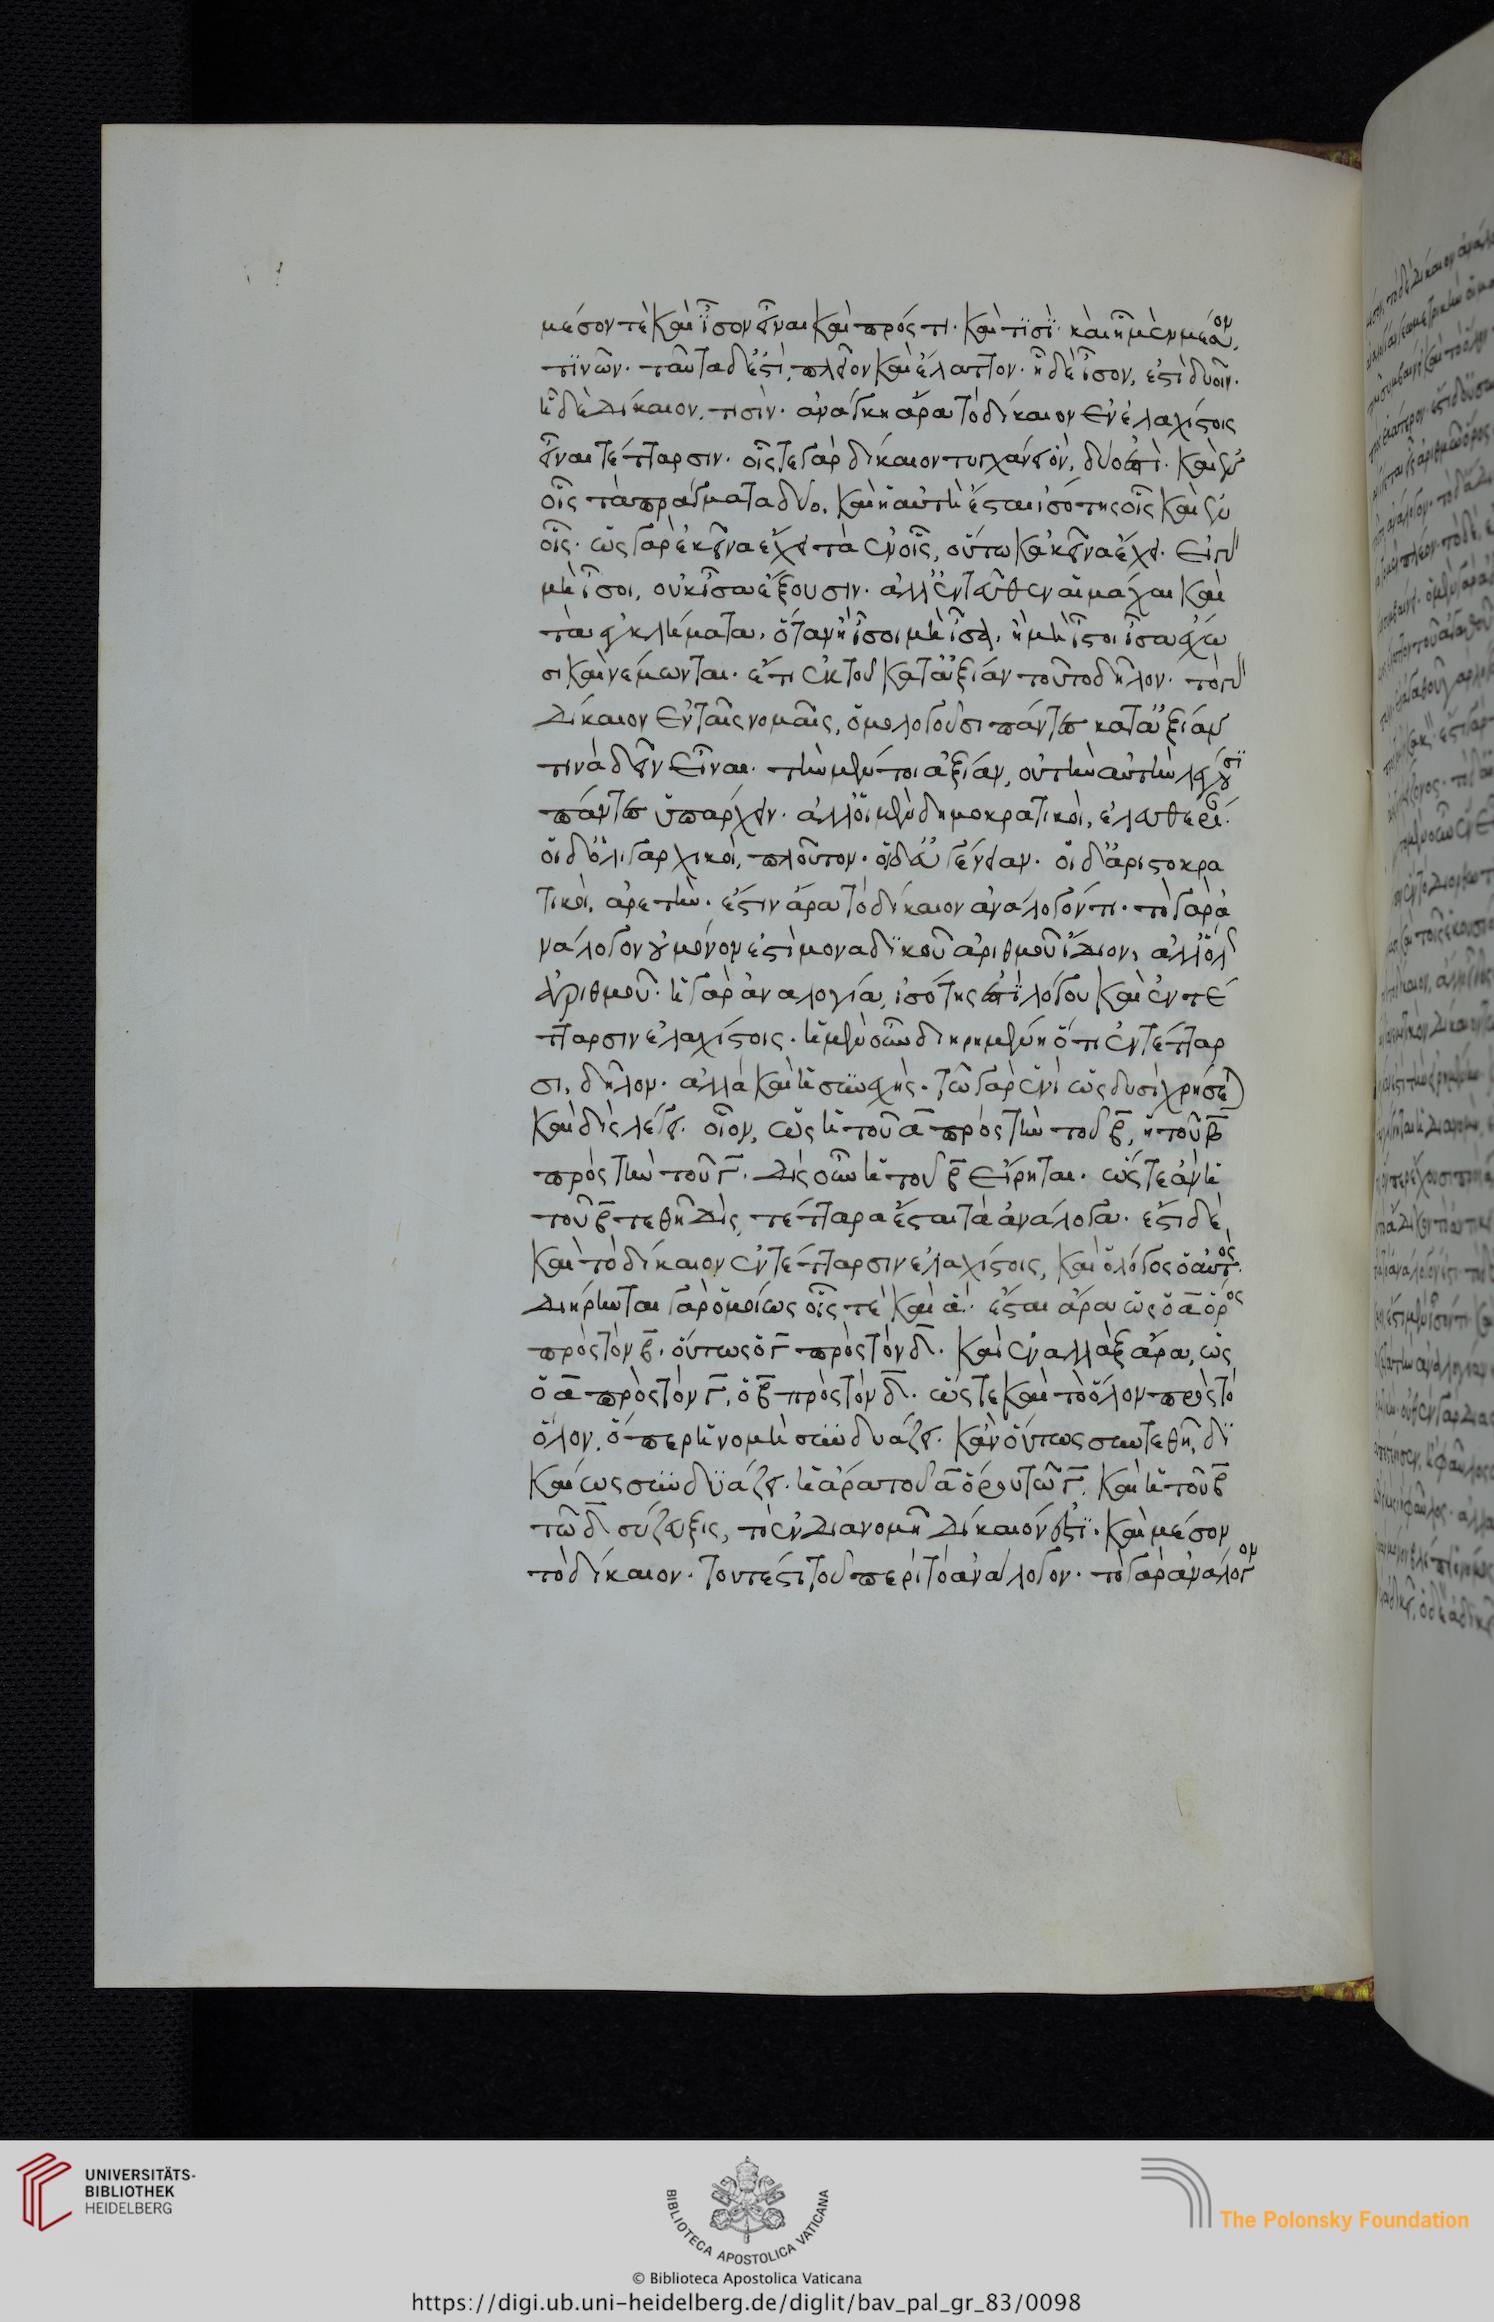 μέσον τὲ καὶ ἴσον εἶναι καὶ πρός τι. καὶ τισὶ. καὶ ἧ μὲν μέσον,
τινῶν. ταῦτα δ' ἐστὶ, πλεῖον καὶ ἔλαττον. ἧ δὲ ἴσον, ἐστὶ δυοῖν.
ἧ δὲ δίκαιον, τισὶν. ἀνάγκη ἄρα τὸ δίκαιον ἐν ἐλαχίστοις
εἶναι τέτταρσιν. οἷς τε γὰρ δίκαιον τυγχάνει ὂν, δύο ἐστὶ. καὶ ἐν
οἷς τὰ πράγματα δύο. καὶ ἡ αὐτὴ ἔσται ἰσότης οἷς καὶ ἐν
οἷς. ὡς γὰρ ἐκεῖνα ἔχει τὰ ἐν οἷς, οὕτω κἀκεῖνα ἔχει. εἰ γὰρ
μὴ ἴσοι, οὐκ ἴσα ἕξουσιν. ἀλλ' ἐντεῦθεν αἱ μάχαι καὶ
τὰ ἐγκλήματα, ὅταν ἢ ἴσοι μὴ ἴσα, ἢ μὴ ἴσοι ἴσα ἔχω
σι καὶ νέμωνται. ἔτι ἐκ τοῦ κατ' ἀξίαν τοῦτο δῆλον. τὸ γὰρ
δίκαιον ἐν ταῖς νομαῖς, ὁμολογοῦσι πάντες κατ' ἀξίαν
τινὰ δεῖν εἶναι. τὴν μέντοι ἀξίαν, οὐ τὴν αὐτὴν λέγουσι
πάντες ὑπάρχειν. ἀλλ' οἱ μὲν δημοκρατικοὶ, ἐλευθερί.
οἱ δ' ὀλιγαρχικοὶ, πλοῦτον. οἱ δ' εὐγένειαν. οἱ δ' ἀριστοκρα
τικοὶ, ἀρετὴν. ἔστιν ἄρα τὸ δίκαιον ἀνάλογόν τι. τὸ γὰρ ἀ
νάλογον οὐ μόνον ἐστὶ μοναδικοῦ ἀριθμοῦ ἴδιον, ἀλλ' ὅλ
ἀριθμοῦ. ἡ γὰρ ἀναλογία, ἰσότης ἐστὶ λόγου καὶ ἐν τέ
τταρσιν ἐλαχίστοις. ἡ μὲν οὖν διηρημένη ὅτι ἐν τέτταρ
σι, δῆλον. ἀλλὰ καὶ ἡ συνεχής. τῷ γὰρ ἑνὶ ὡς δυσὶ χρῆται
καὶ δὶς λέγει. οἷον, ὡς ἡ τοῦ α πρὸς τὴν τοῦ β, ἡ τοῦ β
πρὸς τὴν τοῦ γ. δὶς οὖν ἡ τοῦ β εἴρηται. ὥστε ἀν ἡ
τοῦ β τεθῇ δὶς, τέτταρα ἔσται τὰ ἀνάλογα. ἔστι δὲ
καὶ τὸ δίκαιον ἐν τέτταρσιν ἐλαχίστοις, καὶ ὁ λόγος ὁ αὐτός.
διῄρηται γὰρ ὁμοίως οἷς τὲ καὶ ἅ. ἔσται ἄρα ὡς ὁ α ὅρος
πρὸς τὸν β, οὕτως ὁ γ πρὸς τὸν δ. καὶ ἐναλλὰξ ἄρα, ὡς
ὁ α πρὸς τὸν γ, ὁ β πρὸς τὸν δ. ὥστε καὶ τὸ ὅλον πρὸς τὸ
ὅλον, ὅπερ ἡ νομὴ συνδυάζει. κἂν οὕτως συντεθῇ, δι
καίως συνδυάζει. ἡ ἄρα τοῦ α ὅρου τῷ γ, καὶ ἡ τοῦ β
τῷ δ σύζευξις, τὸ ἐν διανομῇ δίκαιόν ἐστι. καὶ μέσον
τὸ δίκαιον. τουτέστι τοῦ περὶ τὸ ἀνάλογον. τὸ γὰρ ἀνάλογον
UNIVERSITÄTS-
BIBLIOTHEK
HEIDELBERG
BIBLIOTECA APOSTOLICA VATICANA
© Biblioteca Apostolica Vaticana
The Polonsky Foundation
https://digi.ub.uni-heidelberg.de/diglit/bav_pal_gr_83/0098